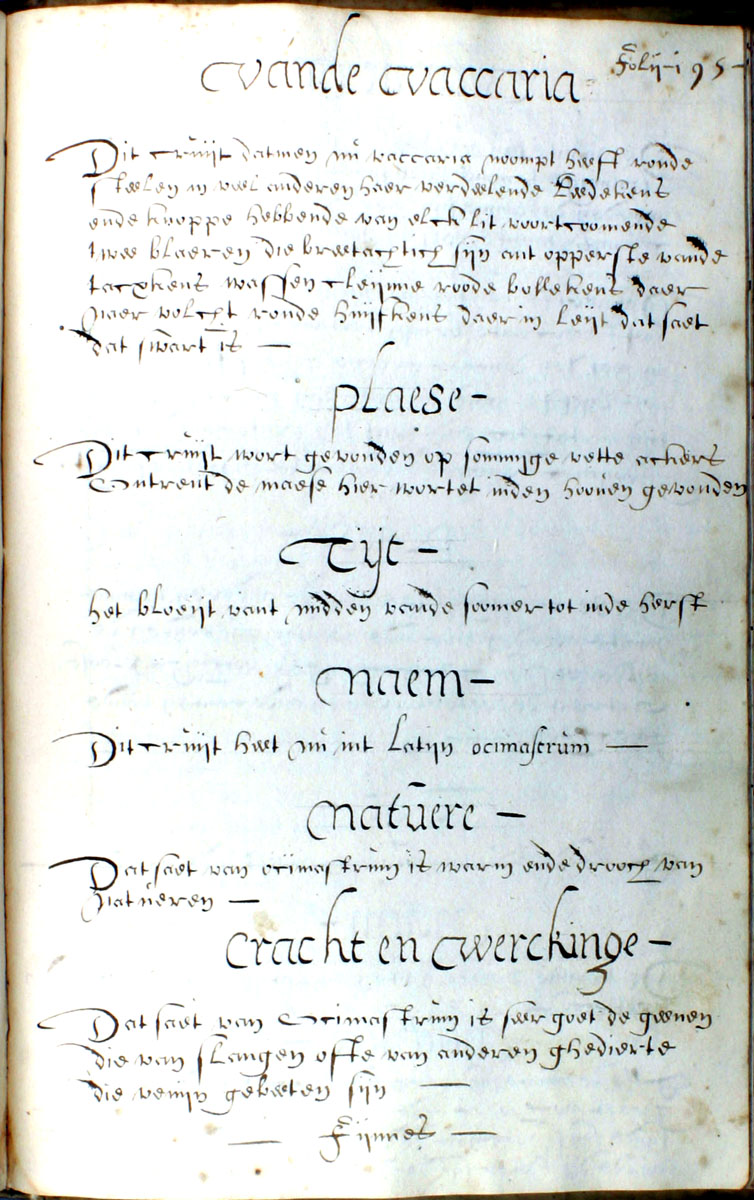 Folij i 95
vande vaccaria
Dit cruijt datmen nu vaccaria noompt heeft ronde
steelen in veel anderen haer verdeelende Leedekens
ende knoppe hebbende van elck lit voortcoomende
twee blaeren die breetachtich sijn ant opperste vande
tacxkens wassen cleijnne roode bollekens daer
naer volcht ronde huijskens daer in leijt dat saet
dat swart is —
plaese –
Dit cruijt wort gevonden op sommige vette ackers
Ontrent de maese hier wortet inden hooven gevonden
Tijt –
het bloeijt vant midden vande soomer tot inde herst
naem –
Dit cruijt heet nu int Latijn ocimastrum —
natuere –
Dat saet van ocimastrum is warm ende drooch van
natueren —
cracht en werckinge –
Dat saet van Ocimastrum is seer goet de geenen
die van slangen ofte van anderen ghedierte
die venijn gebeeten sijn —
— Fijnnes —